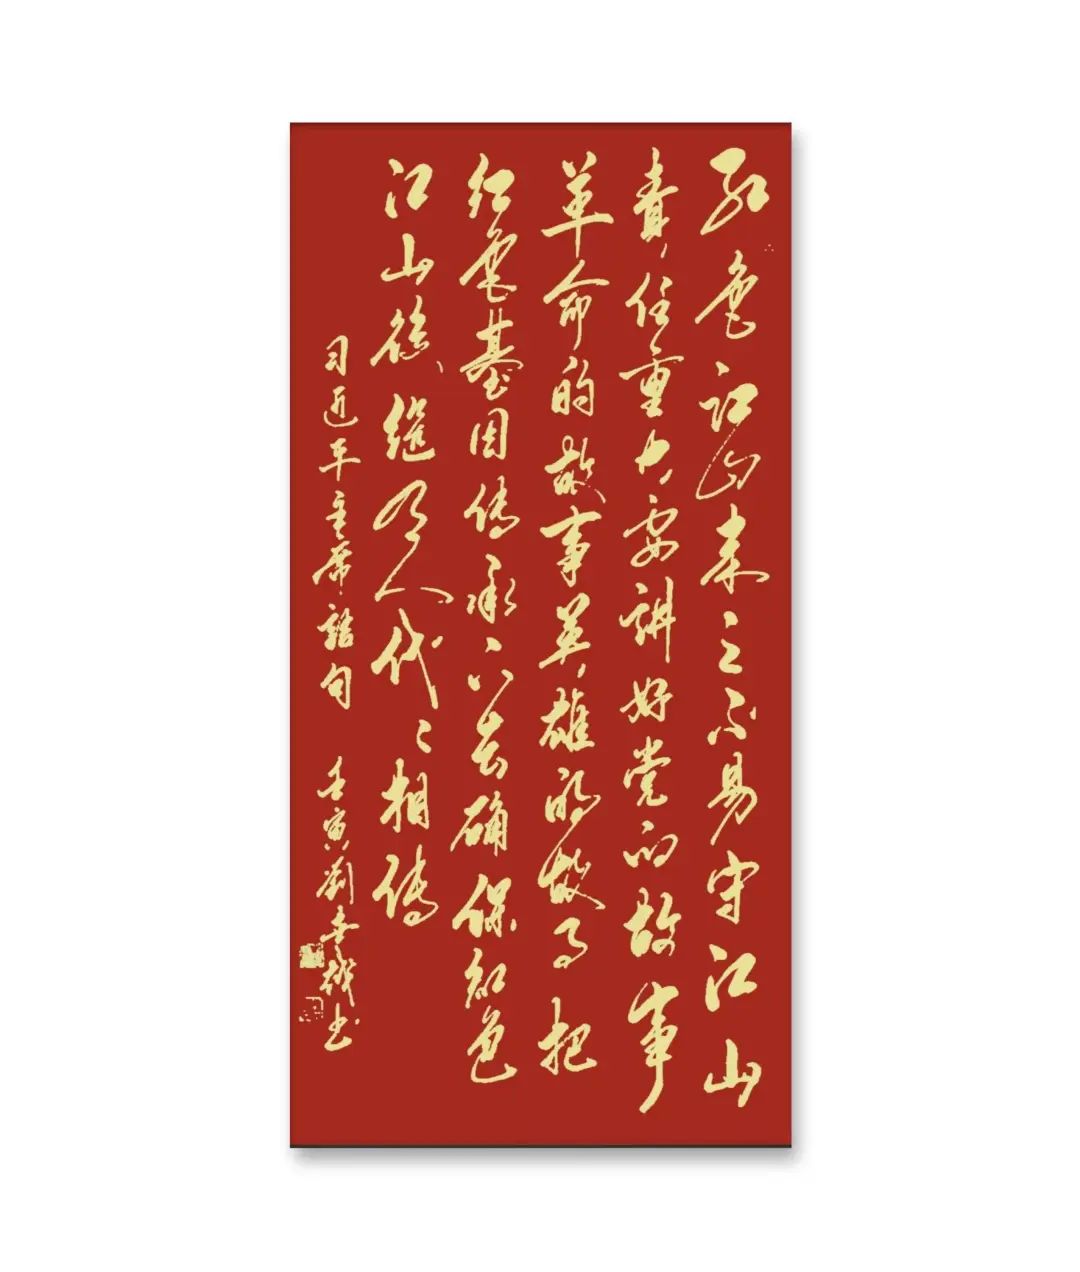 红色江山来之不易守江山
责任重大要讲好党的故事
革命的故事英雄的故事把
红色基因传承下去确保红色
江山後继有人代々相传
习近平主席語句 壬寅刘书